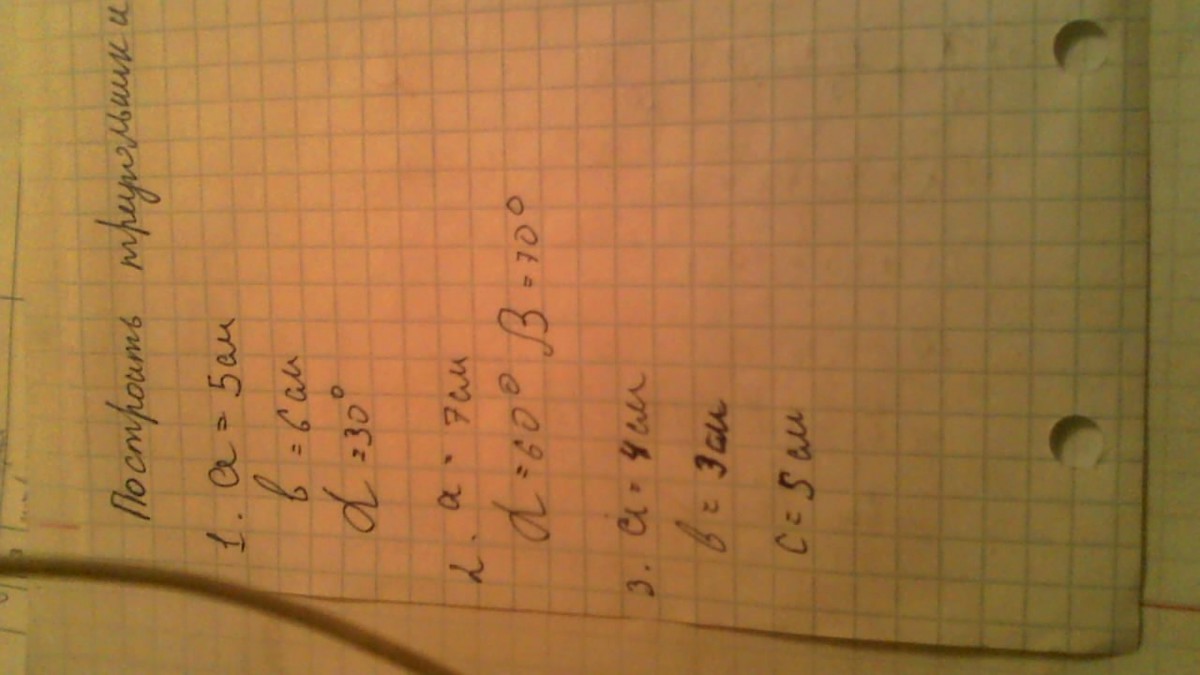 Построить треугольники
1. a = 5 см
в = 6 см
α = 30°
2. a = 7 см
α = 60° β = 70°
3. a = 4 см
в = 3 см
c = 5 см